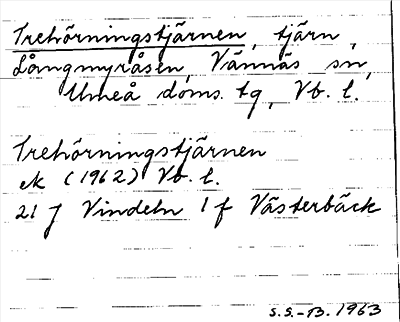 Trehörningstjärnen, tjärn,
Långmyråsen, Vännäs sn,
Umeå doms. tg, Vb. l.
Trehörningstjärnen
ek (1962) Vb. l.
21 J Vindeln 1 f Västerbäck
S.S.-B. 1963